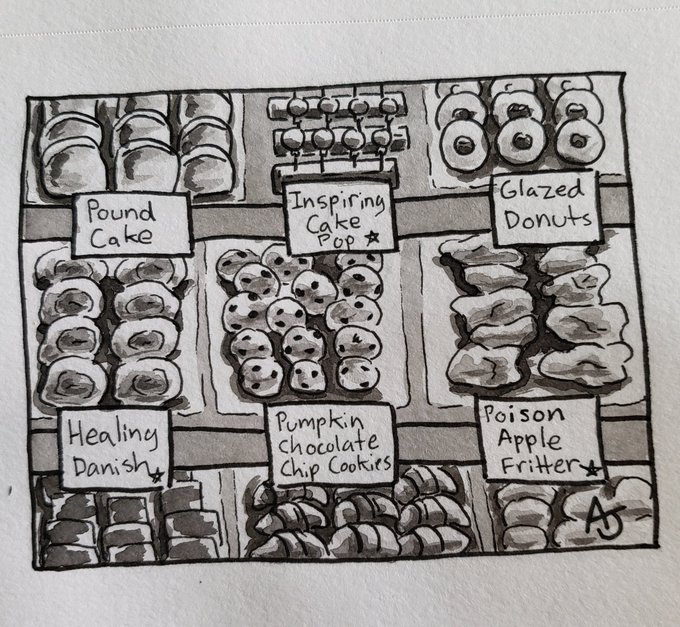 Pound
Cake
Inspiring
Cake
Pop ☆
Glazed
Donuts
Healing
Danish ☆
Pumpkin
Chocolate
Chip Cookies
Poison
Apple
Fritter ★
AJ